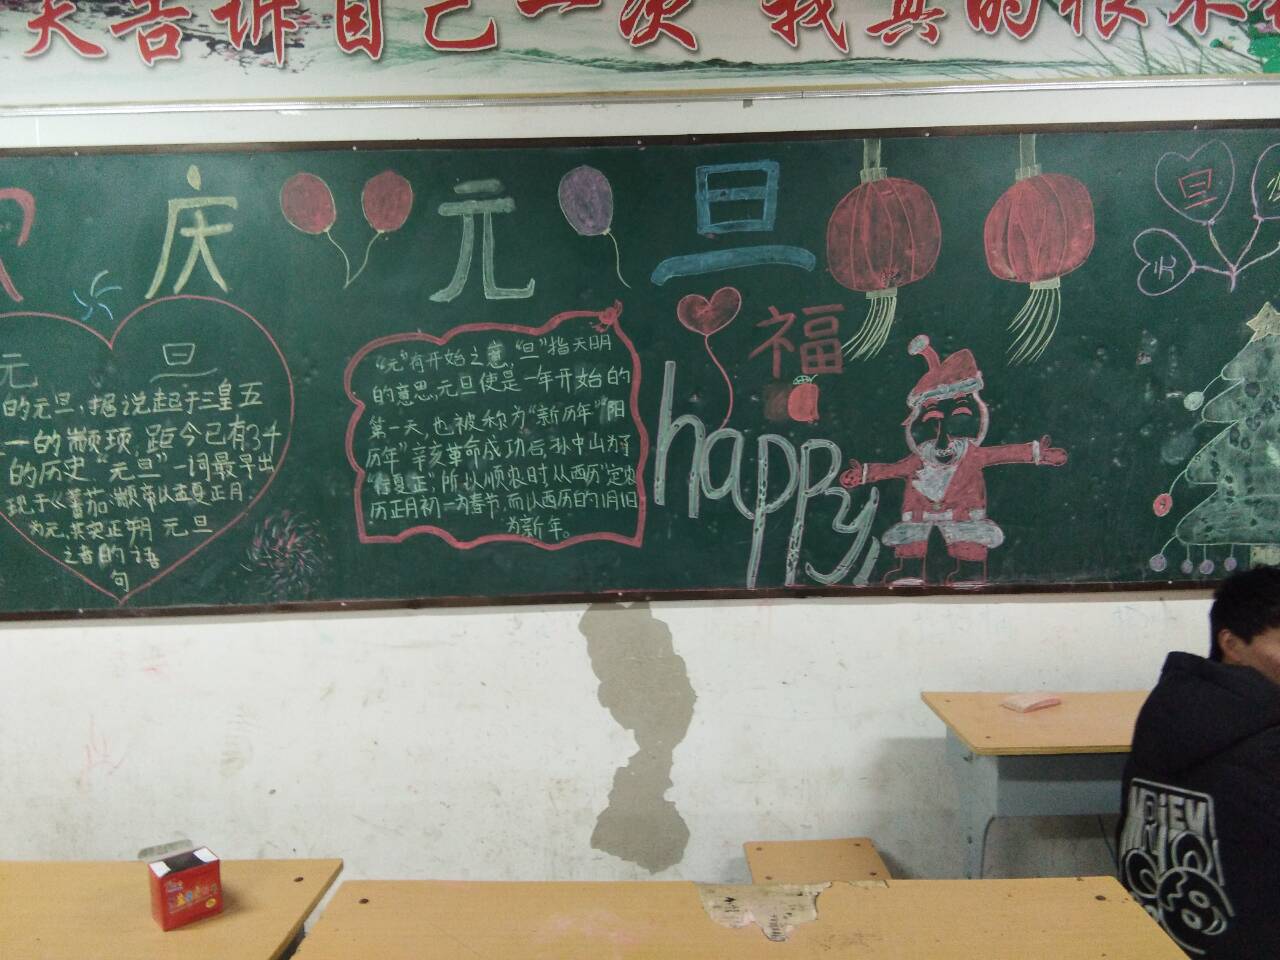 天告诉自己一次 我真的很不
庆 元 旦
元 旦
的元旦，据说起于三皇五
一的颛顼，距今已有3千
的历史“元旦”一词最早出
现于《
为元，其实正朔 元旦
之春的语
句
“元”有开始之意，“旦”指天明
的意思，元旦使是一年开始的
第一天，也被称为“新历年”“阳
历年”辛亥革命成功后，孙中山为了
“行夏正”，所以顺农时从西历”定农
历正月初一为春节，而以西历的1月1日
为新年。
福
happy
旦